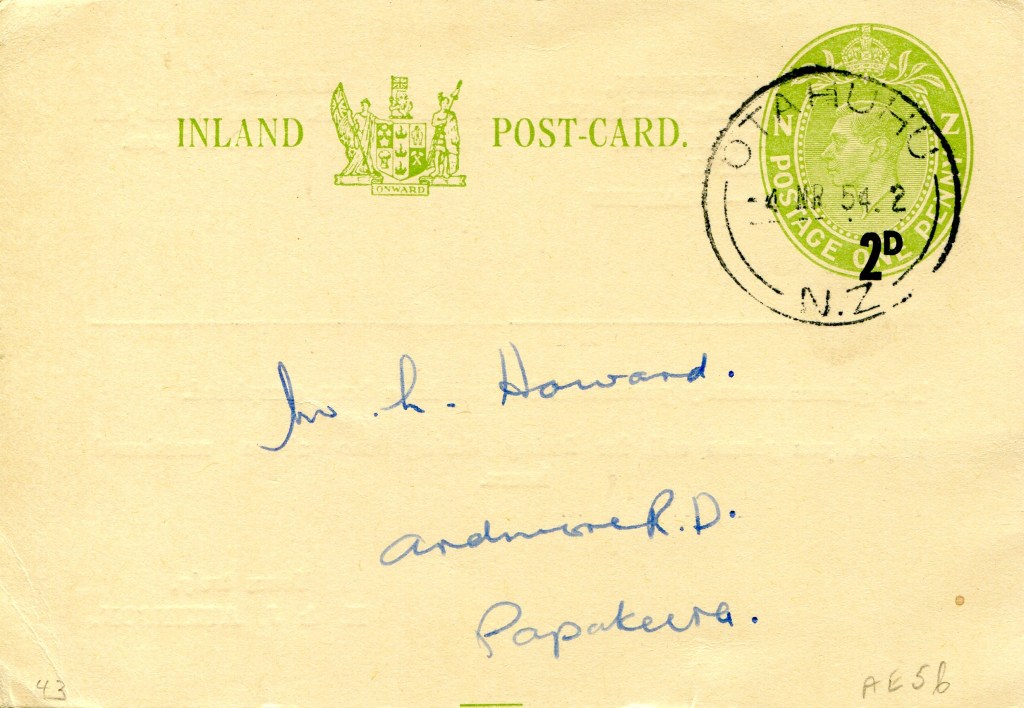 INLAND POST-CARD.
ONWARD
N Z
POSTAGE ONE PENNY
2D
OTAHUHU
-4 MR 54.2
N.Z
h. Howard.
Ardmore R.D.
Papakura.
43
AE5b